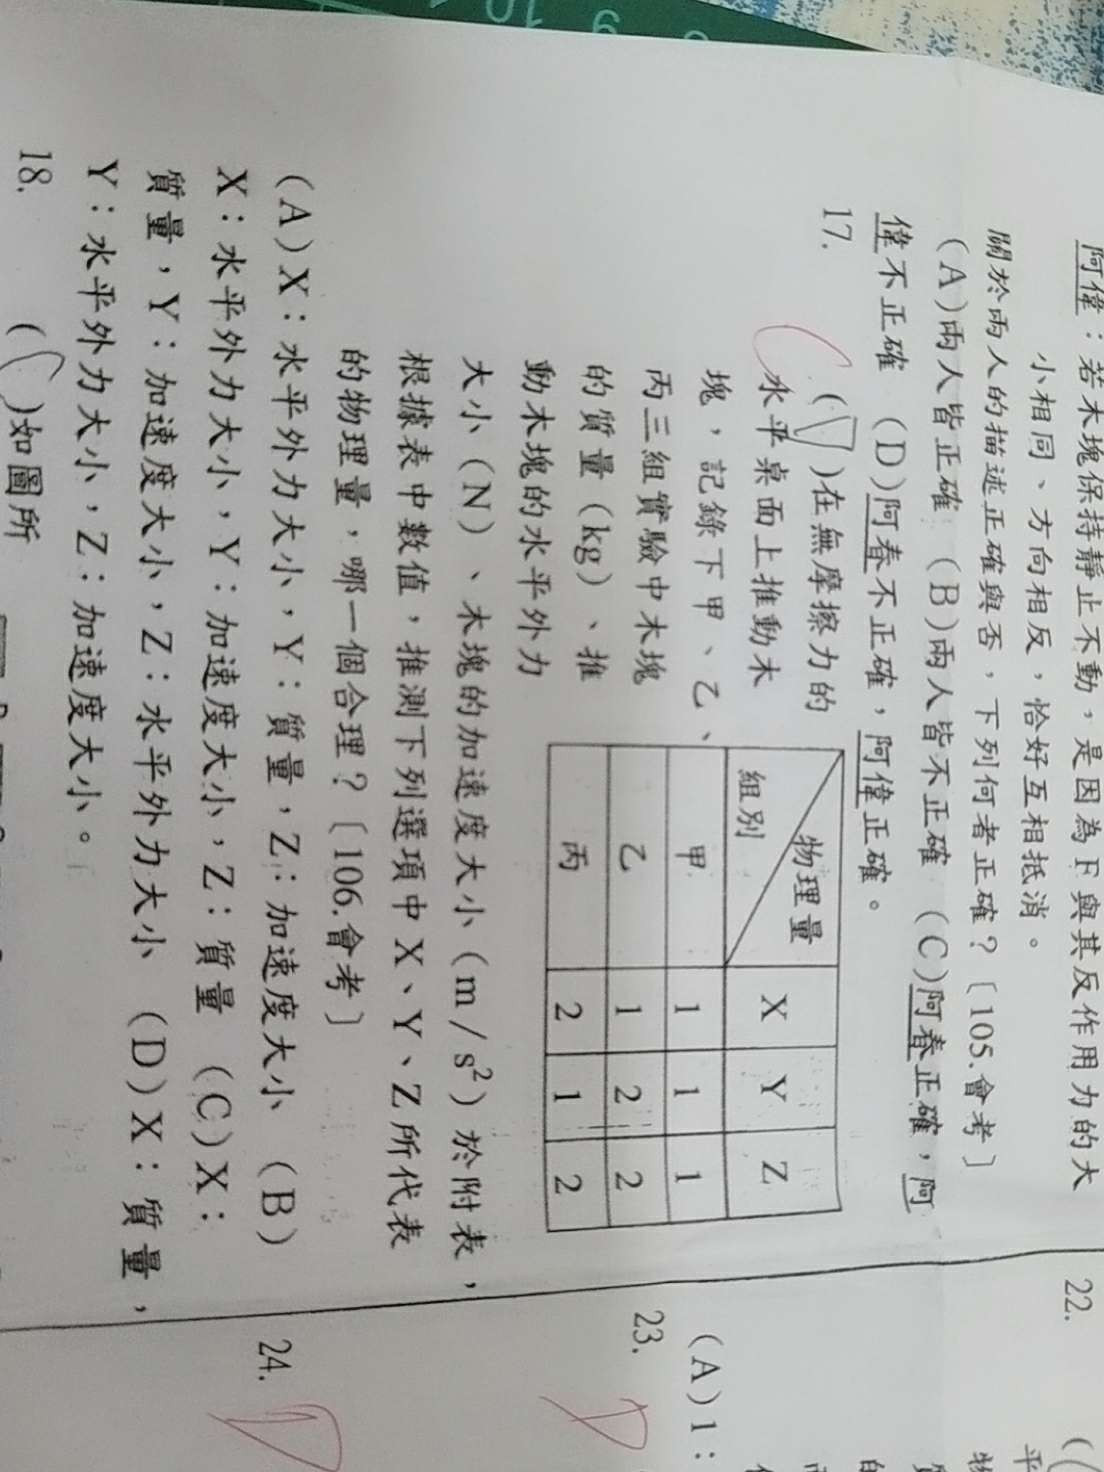 阿偉：若木塊保持靜止不動，是因為F與其反作用力的大
小相同、方向相反，恰好互相抵消。
關於兩人的描述正確與否，下列何者正確？〔105.會考〕
(A)兩人皆正確 (B)兩人皆不正確 (C)阿春正確，阿
偉不正確 (D)阿春不正確，阿偉正確。
17. ( )在無摩擦力的
水平桌面上推動木
塊，記錄下甲、乙、
丙三組實驗中木塊
的質量(kg)、推
動木塊的水平外力
大小(N)、木塊的加速度大小(m/s²)於附表，
根據表中數值，推測下列選項中X、Y、Z所代表
的物理量，哪一個合理？〔106.會考〕
物理量 組別 X Y Z
甲 1 1 1
乙 1 2 2
丙 2 1 2
(A)X：水平外力大小，Y：質量，Z：加速度大小 (B)
X：水平外力大小，Y：加速度大小，Z：質量 (C)X：
質量，Y：加速度大小，Z：水平外力大小 (D)X：質量，
Y：水平外力大小，Z：加速度大小。
18. ( )如圖所
22.
平
(A)1：
23.
24.